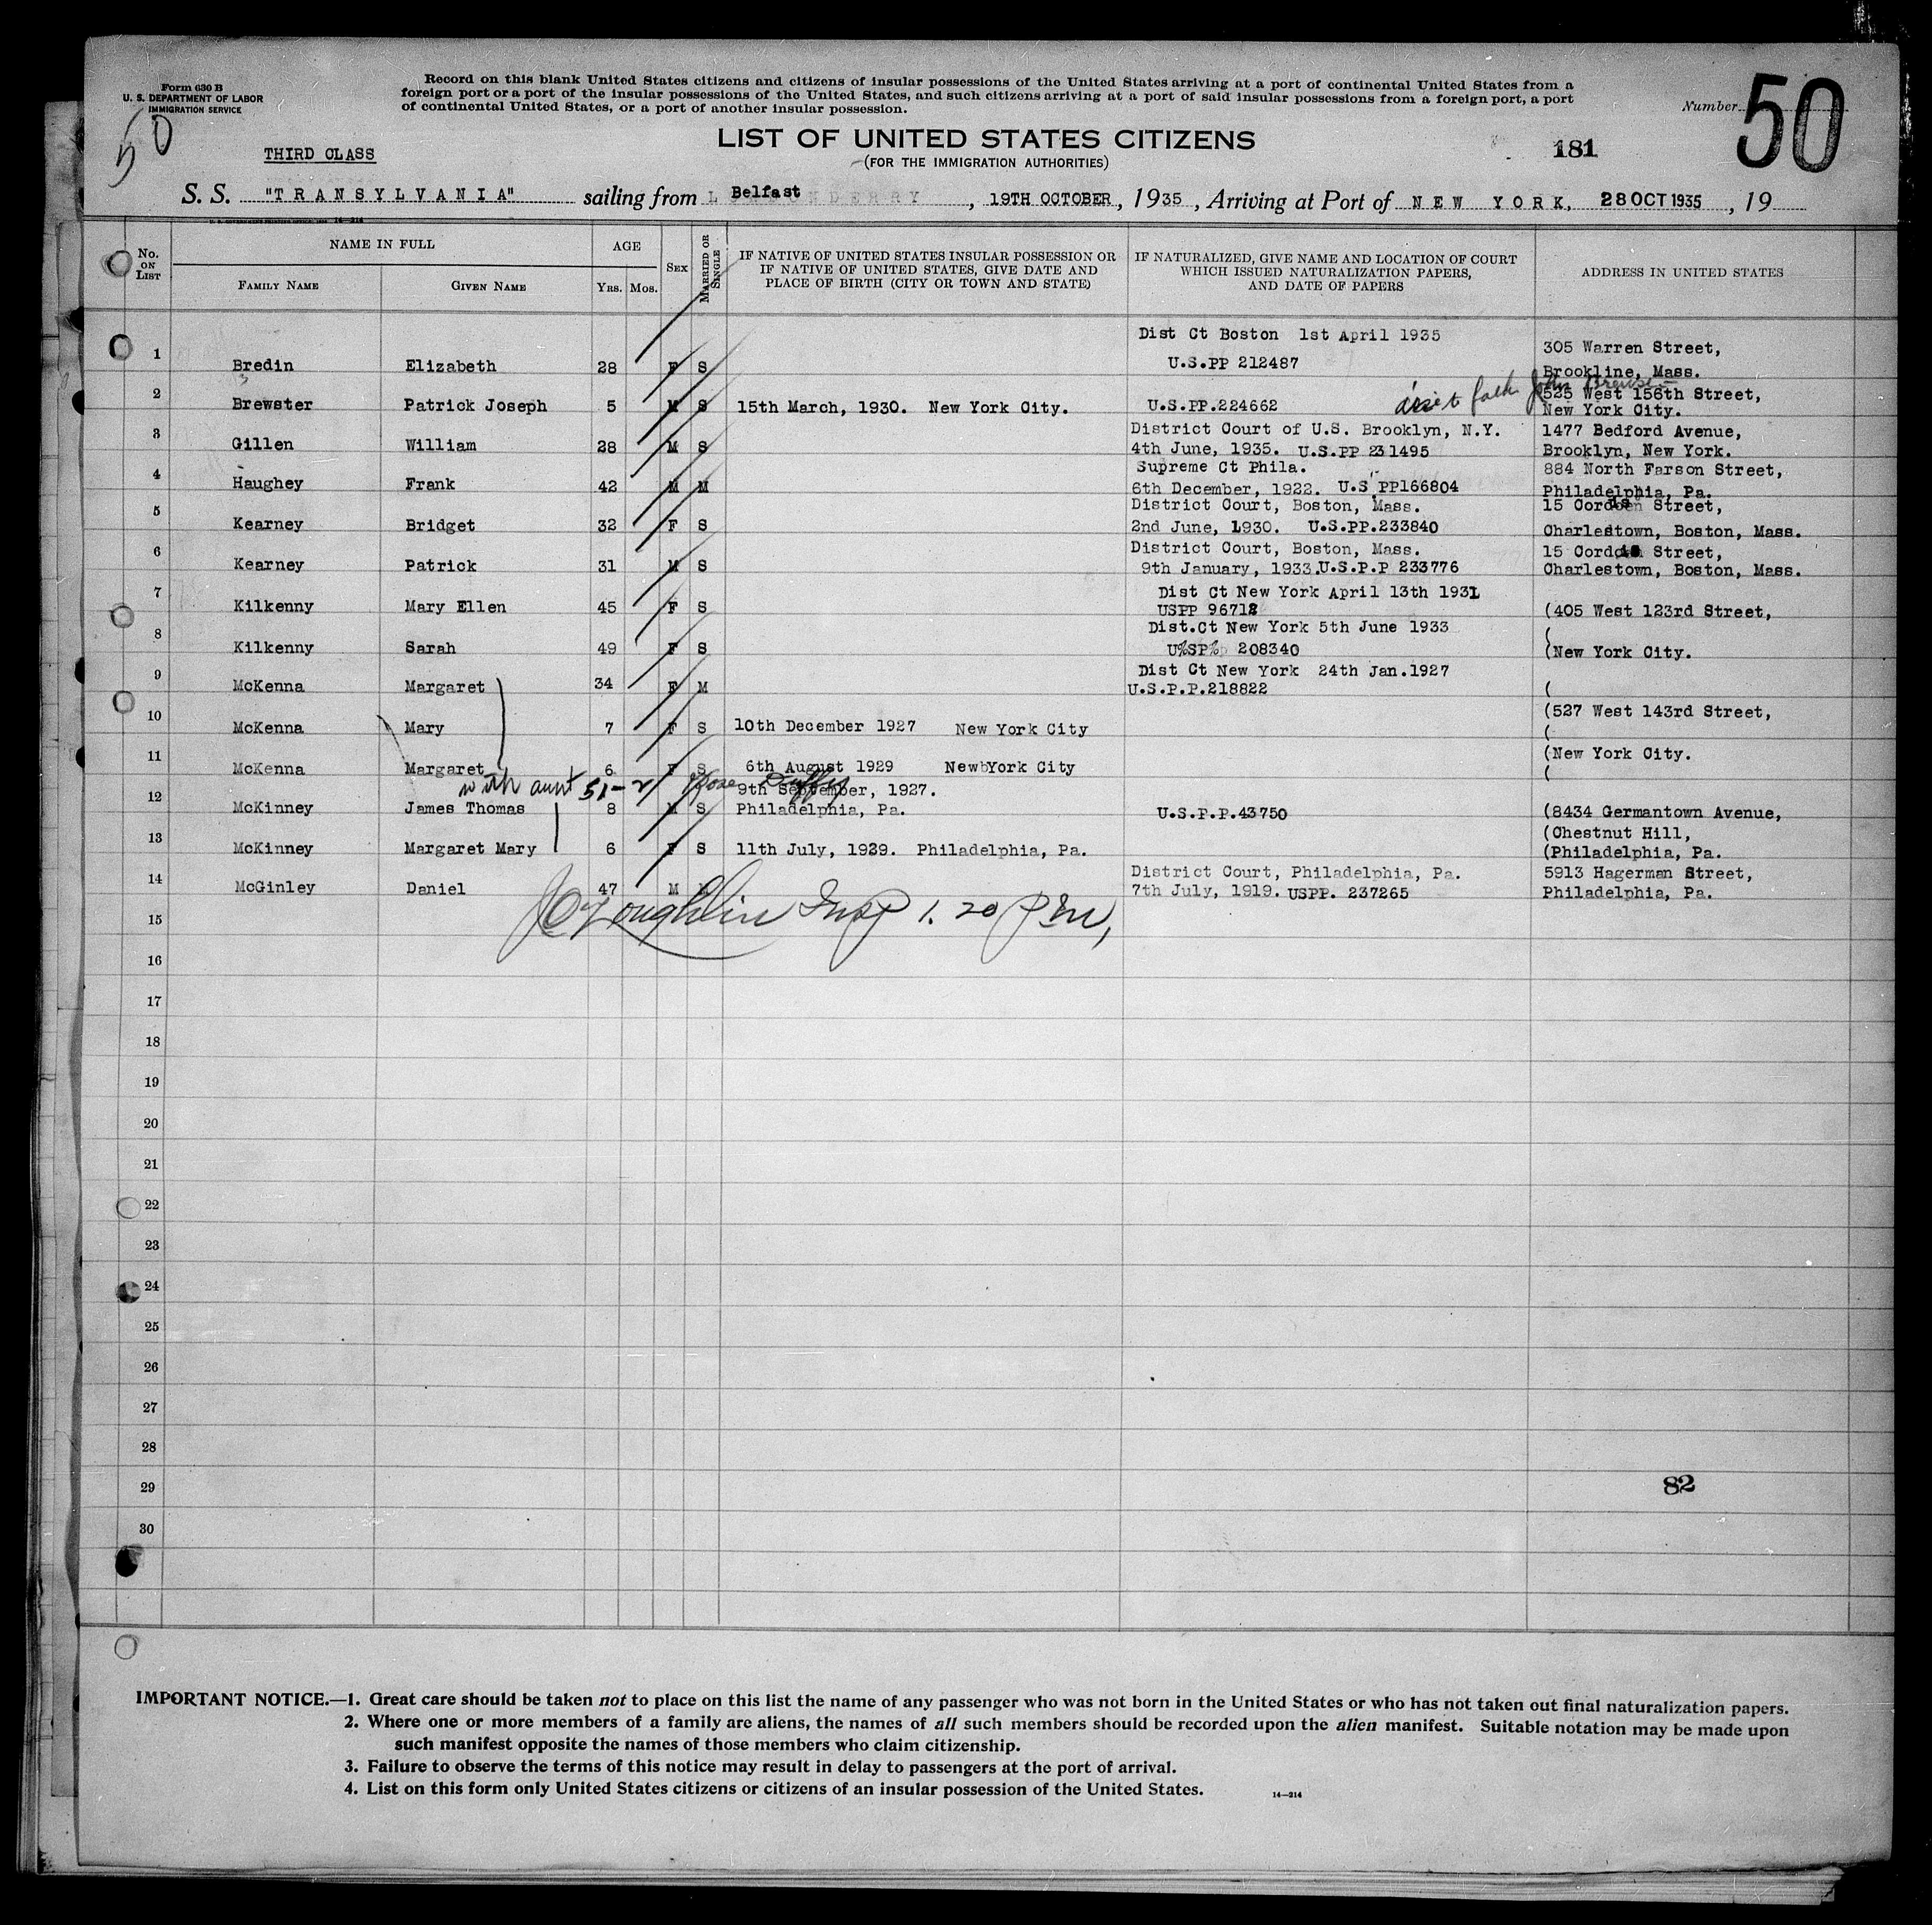 Form 630 B
U. S. DEPARTMENT OF LABOR
IMMIGRATION SERVICE
Record on this blank United States citizens and citizens of insular possessions of the United States arriving at a port of continental United States from a
foreign port or a port of the insular possessions of the United States, and such citizens arriving at a port of said insular possessions from a foreign port, a port
of continental United States, or a port of another insular possession.
Number 50
50
THIRD CLASS
LIST OF UNITED STATES CITIZENS
(FOR THE IMMIGRATION AUTHORITIES)
181
S. S. "TRANSYLVANIA" sailing from Belfast, 19TH OCTOBER, 1935, Arriving at Port of NEW YORK, 28 OCT 1935, 19
No. ON LIST
NAME IN FULL
FAMILY NAME GIVEN NAME
AGE
YRS. MOS.
SEX
MARRIED OR SINGLE
IF NATIVE OF UNITED STATES INSULAR POSSESSION OR
IF NATIVE OF UNITED STATES, GIVE DATE AND
PLACE OF BIRTH (CITY OR TOWN AND STATE)
IF NATURALIZED, GIVE NAME AND LOCATION OF COURT
WHICH ISSUED NATURALIZATION PAPERS,
AND DATE OF PAPERS
ADDRESS IN UNITED STATES
Dist Ct Boston 1st April 1935
305 Warren Street,
1 Bredin Elizabeth 28 F S U.S.PP 212487
Brookline, Mass.
John
525 West 156th Street,
2 Brewster Patrick Joseph 5 M S 15th March, 1930. New York City. U.S.PP.224662 New York City.
District Court of U.S. Brooklyn, N.Y. 1477 Bedford Avenue,
3 Gillen William 28 M S 4th June, 1935. U.S.PP 231495 Brooklyn, New York.
Supreme Ct Phila. 884 North Farson Street,
4 Haughey Frank 42 M M 6th December, 1922. U.S PP166804 Philadelphia, Pa.
District Court, Boston, Mass. 15 Street,
5 Kearney Bridget 32 F S 2nd June, 1930. U.S.PP.233840 Charlestown, Boston, Mass.
District Court, Boston, Mass. 15 Street,
6 Kearney Patrick 31 M S 9th January, 1933. U.S.P.P 233776 Charlestown, Boston, Mass.
Dist Ct New York April 13th 1931
7 Kilkenny Mary Ellen 45 F S USPP 96718 (405 West 123rd Street,
Dist.Ct New York 5th June 1933 (
8 Kilkenny Sarah 49 F S U%SP% 208340 (New York City.
Dist Ct New York 24th Jan.1927
9 McKenna Margaret 34 F M U.S.P.P.218822 (
(527 West 143rd Street,
10 McKenna Mary 7 F S 10th December 1927 New York City (
(New York City.
11 McKenna Margaret 6 F S 6th August 1929 New York City (
with aunt 51-2 Rose Duffy
9th September, 1927.
12 McKinney James Thomas 8 M S Philadelphia, Pa. U.S.P.P.43750 (8434 Germantown Avenue,
(Chestnut Hill,
13 McKinney Margaret Mary 6 F S 11th July, 1929. Philadelphia, Pa. (Philadelphia, Pa.
District Court, Philadelphia, Pa. 5913 Hagerman Street,
14 McGinley Daniel 47 M 7th July, 1919. USPP. 237265 Philadelphia, Pa.
15 Insp 1.20 PM,
16
17
18
19
20
21
22
23
24
25
26
27
28
29 82
30
IMPORTANT NOTICE.—1. Great care should be taken not to place on this list the name of any passenger who was not born in the United States or who has not taken out final naturalization papers.
2. Where one or more members of a family are aliens, the names of all such members should be recorded upon the alien manifest. Suitable notation may be made upon
such manifest opposite the names of those members who claim citizenship.
3. Failure to observe the terms of this notice may result in delay to passengers at the port of arrival.
4. List on this form only United States citizens or citizens of an insular possession of the United States.
14—214